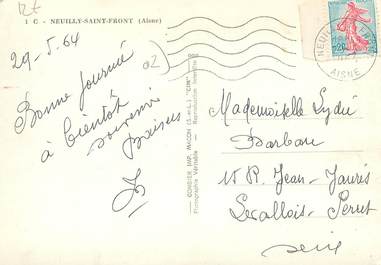 1 C - NEUILLY-SAINT-FRONT (Aisne)
29-5.64
Bonne Journée
à bientôt
souvenir
baisers
COMBIER IMP. MACON (S.-et-L.) "CIM"
Photographie Véritable - Reproduction Interdite
0,20
AISNE
Mademoiselle Lydie
Barbau
15 R. Jean-Jaurès
Levallois-Perret
Seine